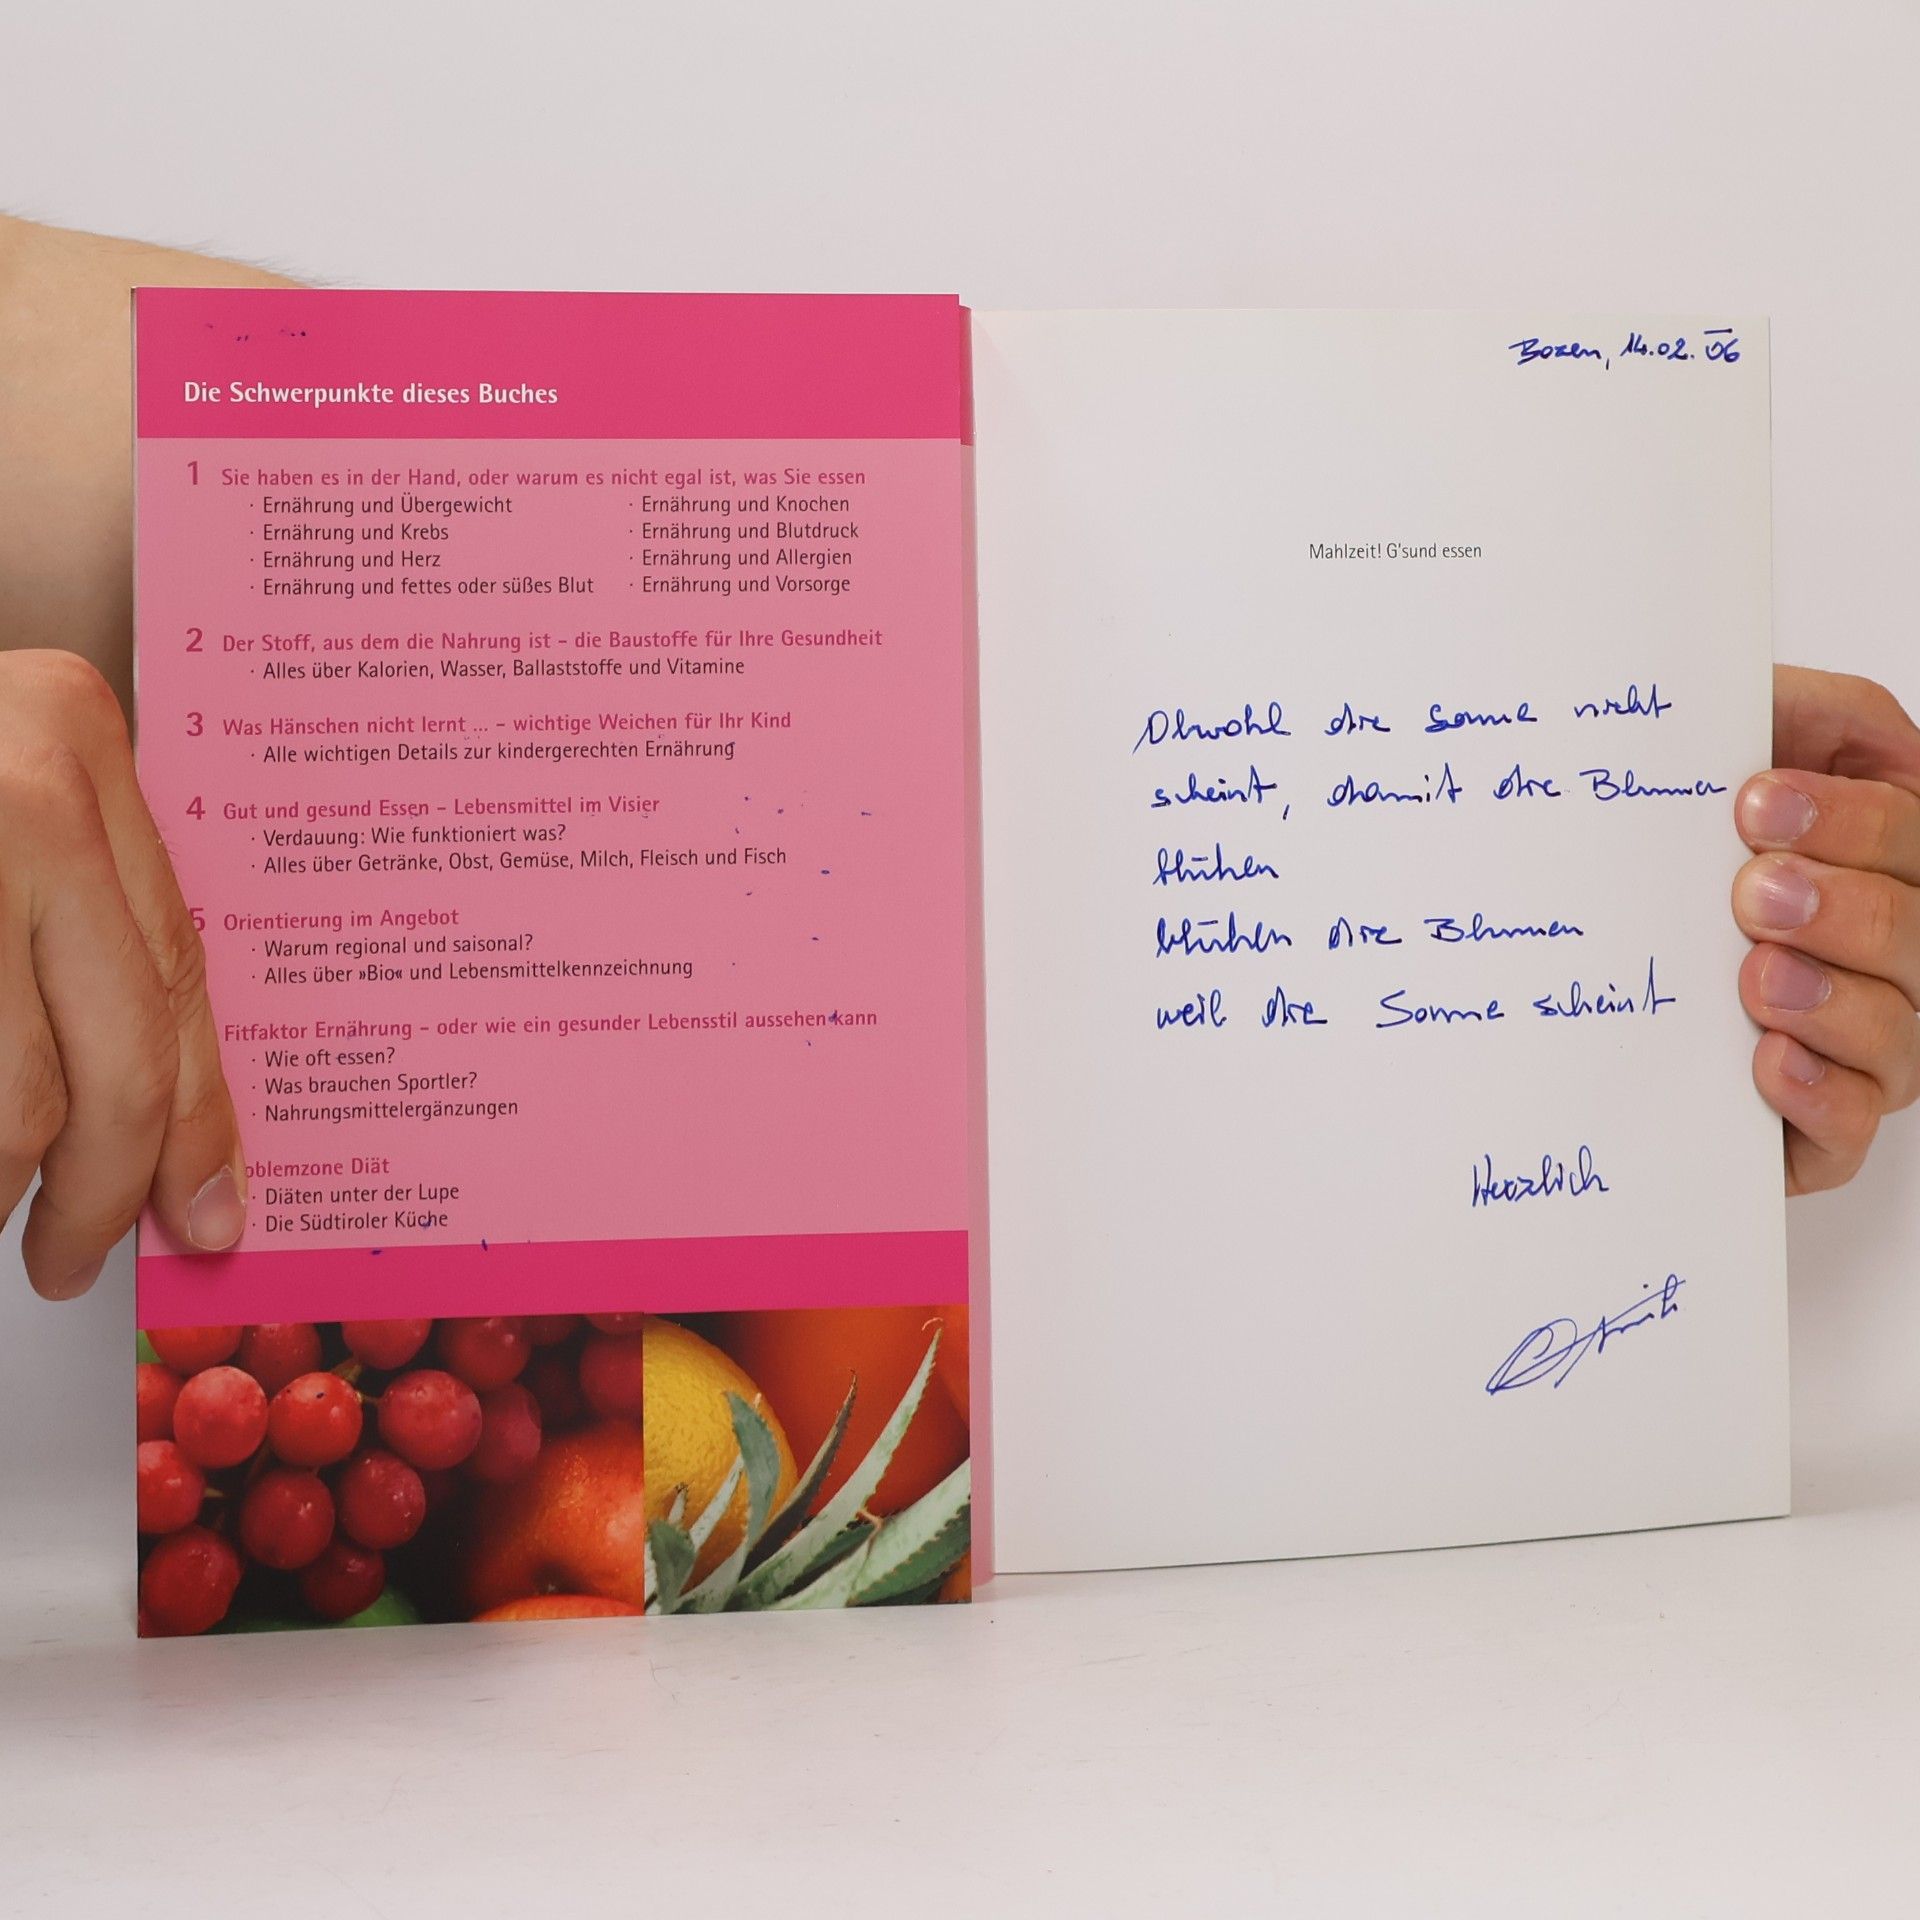 Die Schwerpunkte dieses Buches
1 Sie haben es in der Hand, oder warum es nicht egal ist, was Sie essen
· Ernährung und Übergewicht
· Ernährung und Krebs
· Ernährung und Herz
· Ernährung und fettes oder süßes Blut
· Ernährung und Knochen
· Ernährung und Blutdruck
· Ernährung und Allergien
· Ernährung und Vorsorge
2 Der Stoff, aus dem die Nahrung ist – die Baustoffe für Ihre Gesundheit
· Alles über Kalorien, Wasser, Ballaststoffe und Vitamine
3 Was Hänschen nicht lernt ... – wichtige Weichen für Ihr Kind
· Alle wichtigen Details zur kindergerechten Ernährung
4 Gut und gesund Essen – Lebensmittel im Visier
· Verdauung: Wie funktioniert was?
· Alles über Getränke, Obst, Gemüse, Milch, Fleisch und Fisch
5 Orientierung im Angebot
· Warum regional und saisonal?
· Alles über »Bio« und Lebensmittelkennzeichnung
Fitfaktor Ernährung – oder wie ein gesunder Lebensstil aussehen kann
· Wie oft essen?
· Was brauchen Sportler?
· Nahrungsmittelergänzungen
oblemzone Diät
· Diäten unter der Lupe
· Die Südtiroler Küche
Bozen, 14.02.06
Mahlzeit! G'sund essen
Obwohl die Sonne nicht
scheint, damit die Blumen
blühen
blühen die Blumen
weil die Sonne scheint
Herzlich